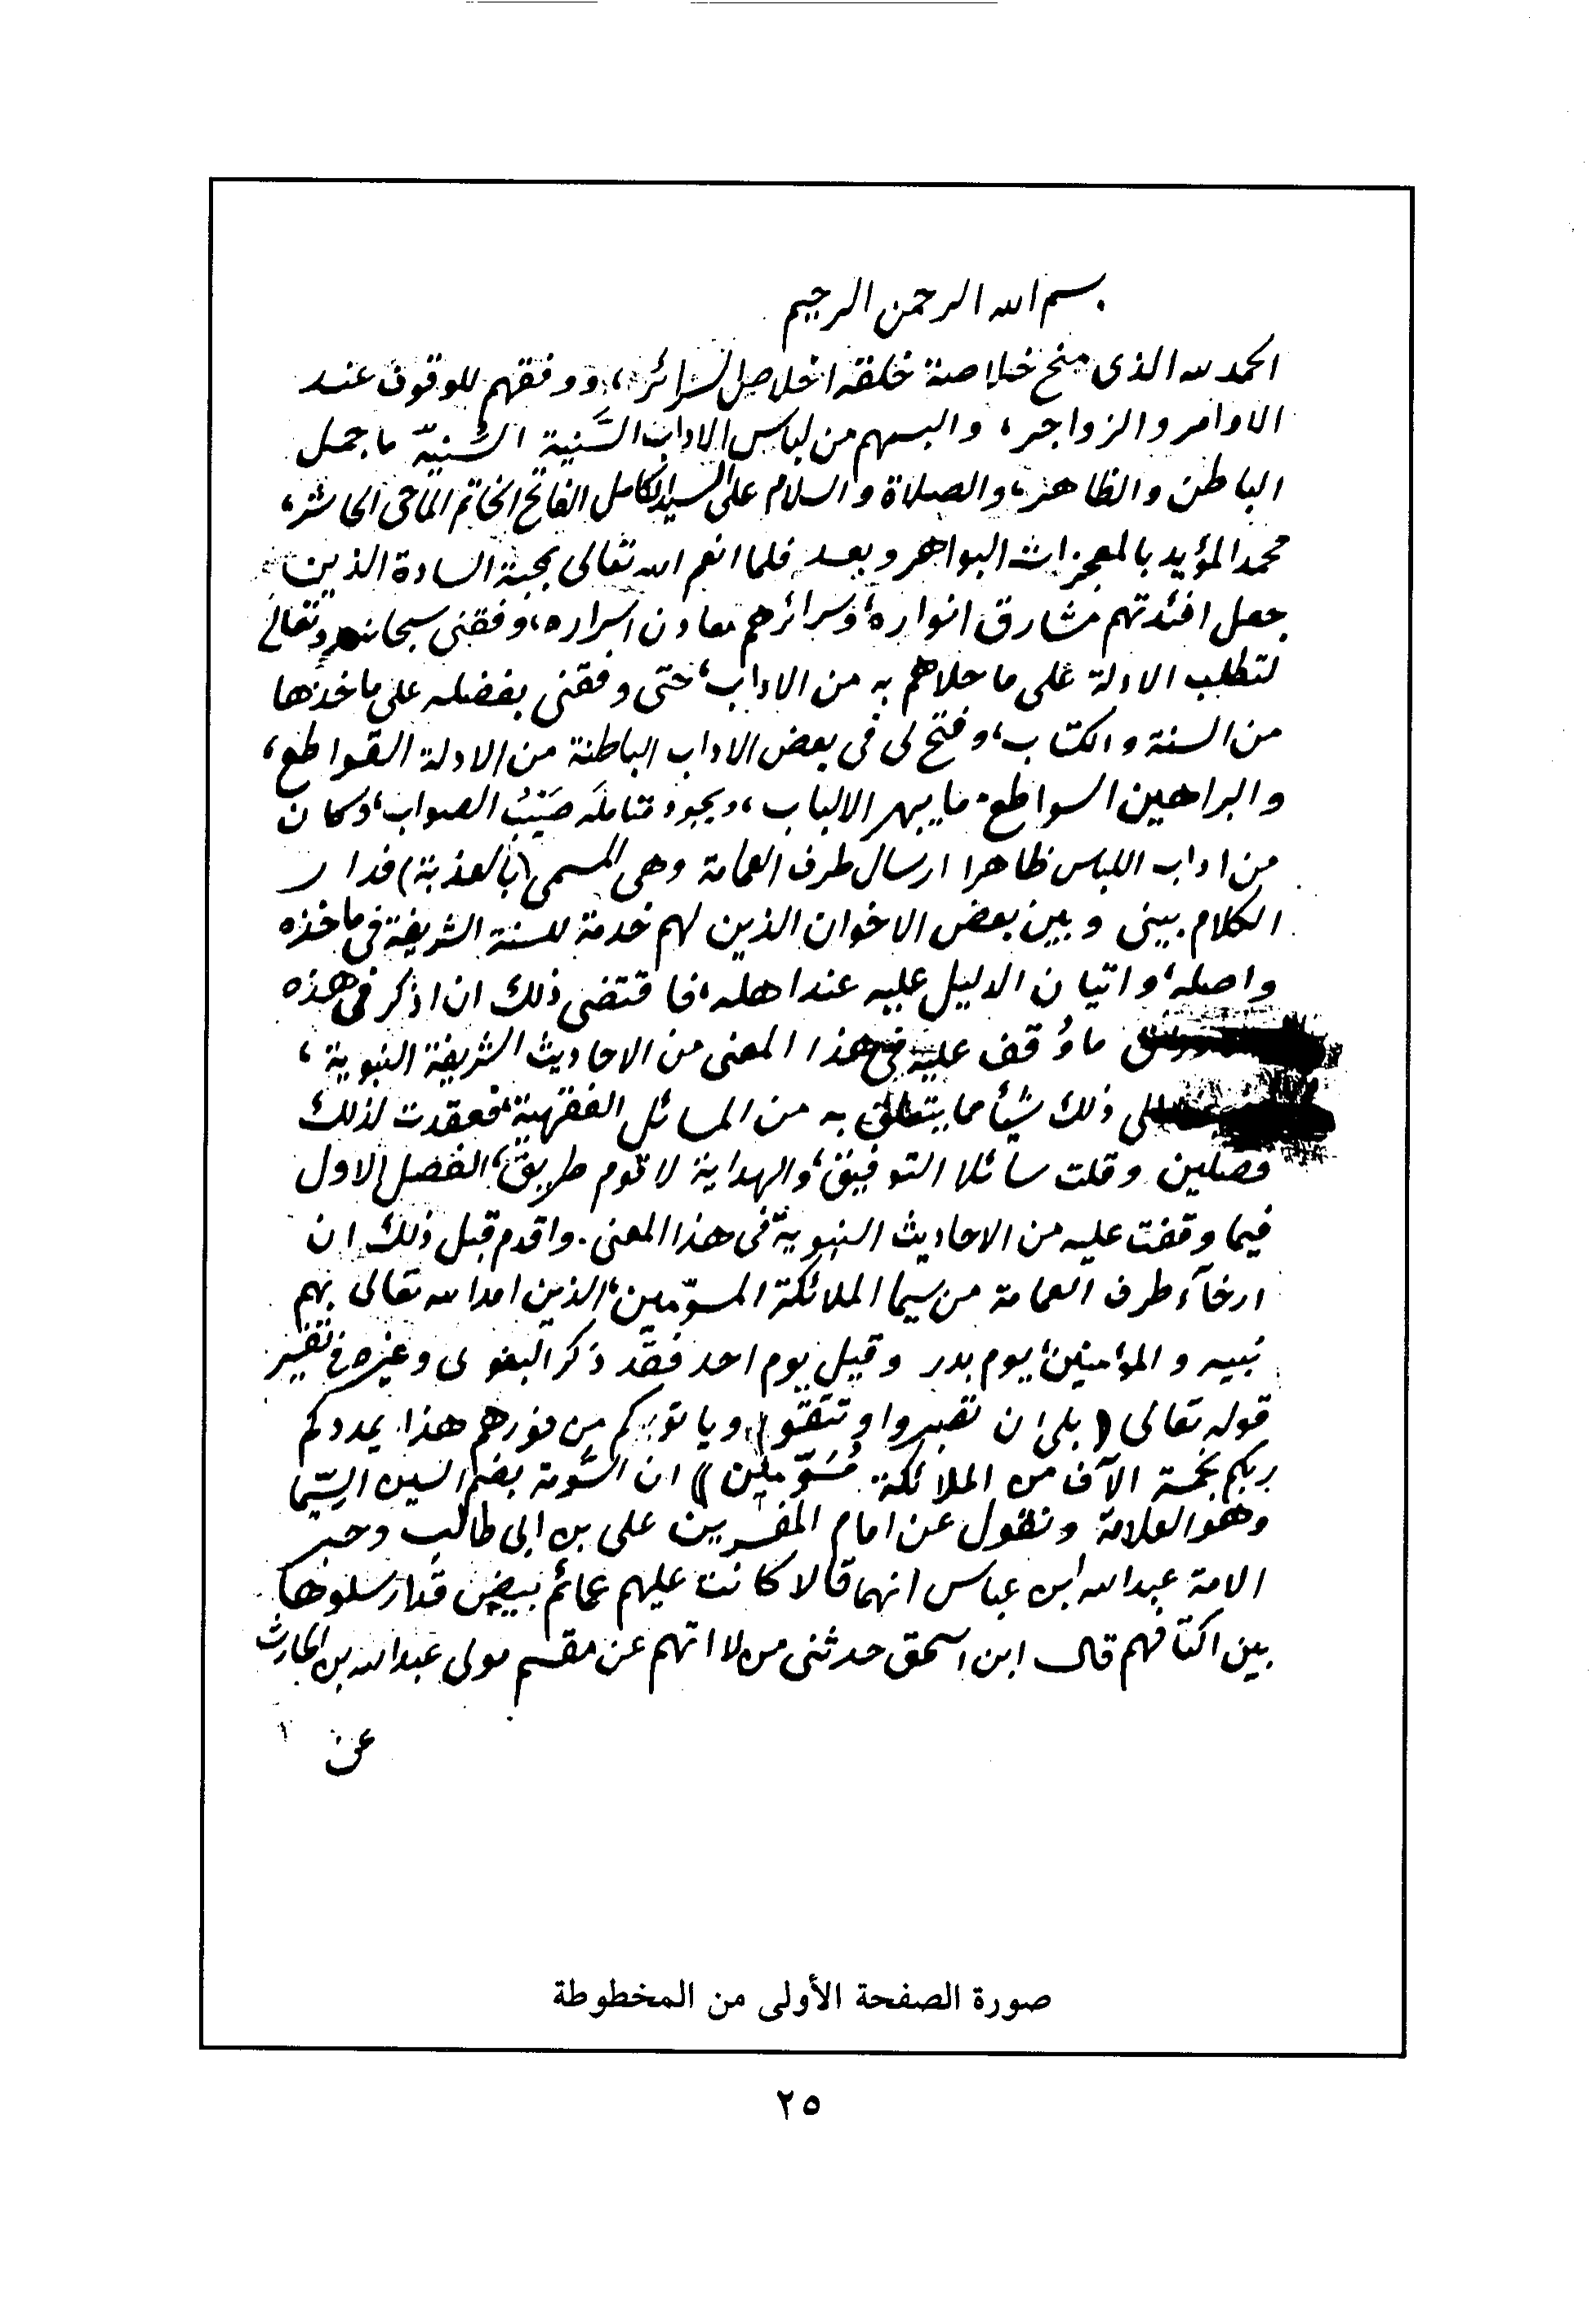 بسم الله الرحمن الرحيم
الحمد لله الذى منح خلاصة خلقه اخلاص السرائر، ووفقهم للوقوف عند
الاوامر والزواجر، والبسهم من لباس الاداب السَّنية السُّنيّة ما جمل
الباطن والظاهر، والصلاة والسلام على السيد الكامل الفاتح الخاتم الماحى الحاشر،
محمد المؤيد بالمعجزات البواهر وبعد فلما انعم الله تعالى بمحبة السادة الذين
جعل افئدتهم مشارق انواره، وسرائرهم معادن اسراره، وفقنى سبحانه وتعالى
لتطلب الادلة على ما حلاهم به من الاداب، حتى وفقنى بفضله على ماخذها
من السنة والكتاب، وفتح لى فى بعض الاداب الباطنة من الادلة القواطع،
والبراهين السواطع، ما يبهر الالباب، ويجود متاملَه صَيّبُ الصواب، وكان
من اداب اللباس ظاهرا ارسال طرف العمامة وهى المسمى (بالعذبة) فدار
الكلام بينى وبين بعض الاخوان الذين لهم خدمة للسنة الشريفة فى ماخذه
واصله، واتيان الدليل عليه عند اهله، فاقتضى ذلك ان اذكر فى هذه
ما وُقف عليه فى هذا المعنى من الاحاديث الشريفة النبوية،
الى ذلك شيأ مما يتعلق به من المسائل الفقهية، فعقدت لذلك
فصلين وقلت سائلا التوفيق، والهداية لاقوم طريق، الفصل الاول
فيما وقفت عليه من الاحاديث النبوية فى هذا المعنى. واقدم قبل ذلك ان
ارخآء طرف العمامة من سيما الملائكة المسوّمين، الذين امد الله تعالى بهم
نبيه والمؤمنين، يوم بدر وقيل يوم احد فقد ذكر البغوى وغيره فى تفسير
قوله تعالى (بلى ان تصبروا وتتقوا، وياتوكم من فورهم هذا يمددكم
ربكم بخمسة الآف من الملائكة مُسَوّمين) ان السُّومة بضم السين السِّيما
وهو العلامة ونقول عن امام المفسرين على بن ابى طالب وحبر
الامة عبدالله ابن عباس انهما قالا كانت عليهم عمائم بيض قد ارسلوها
بين اكتافهم قال ابن اسحق حدثنى من لا اتهم عن مقسم مولى عبدالله بن الحارث
عن
١
صورة الصفحة الأولى من المخطوطة
٢٥